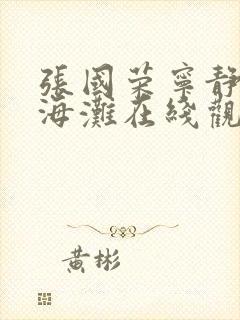 張國荣寧靜
海灘在綫觀
黃彬